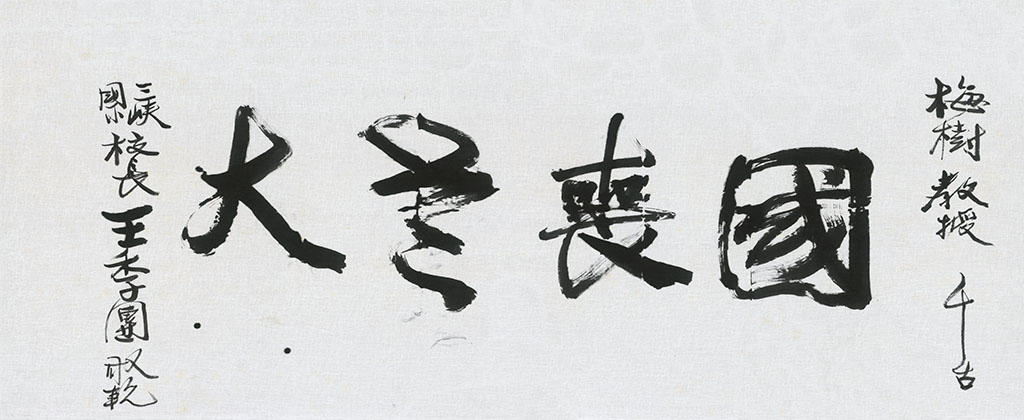 梅樹教授 千古
國喪大
三峽國小校長 王季團 敬輓